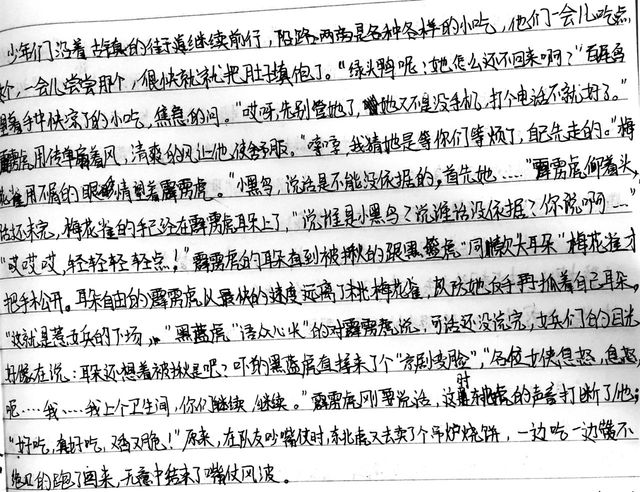 少年们沿着古镇的街道继续前行，陌路两旁是各种各样的小吃，他们一会儿吃点
个，一会儿尝尝那个，很快就就把肚子填饱了。“绿头鸭呢？她怎么还不回来啊？”百舌鸟
望着手中快凉了的小吃，焦急的问。“哎呀，先别管她了，她又不是没手机，打个电话不就好了。”
霹雳虎用传单扇着风，清爽的风让他很舒服。“喳喳，我猜她是等你们等烦了，自己先走的。”梅
花雀用不屑的眼神情望着霹雳虎。“小黑鸟，说话是不能没依据的，首先她……”霹雳虎仰着头，
话还未完，梅花雀的手已经在霹雳虎耳朵上了，“说谁是小黑鸟？说谁话没依据？你说啊……”
“哎哎哎，轻轻轻轻点！”霹雳虎的耳朵直到被揪的跟黑猫虎“同款大耳朵”梅花雀才
把手松开。耳朵自由的霹雳虎以最快的速度远离了梅花雀，以防她反手再抓着自己耳朵。
“这就是惹女兵的下场，”黑蓝虎“语众心长”的对霹雳虎说，可话还没说完，女兵们的目光
好像在说：耳朵还想着被揪是吧？吓的黑蓝虎直接来了个“京剧变脸”，“各位女侠息怒，息怒，
呃……我……我上个卫生间，你们继续，继续。”霹雳虎刚要说话，这时东北虎的声音打断了他：
“好吃，真好吃，又香又脆！”原来，在队友吵嘴仗时，东北虎又去买了个吊炉烧饼，一边吃一边嘴不
绝口的跑了回来，无意中结束了嘴仗风波。